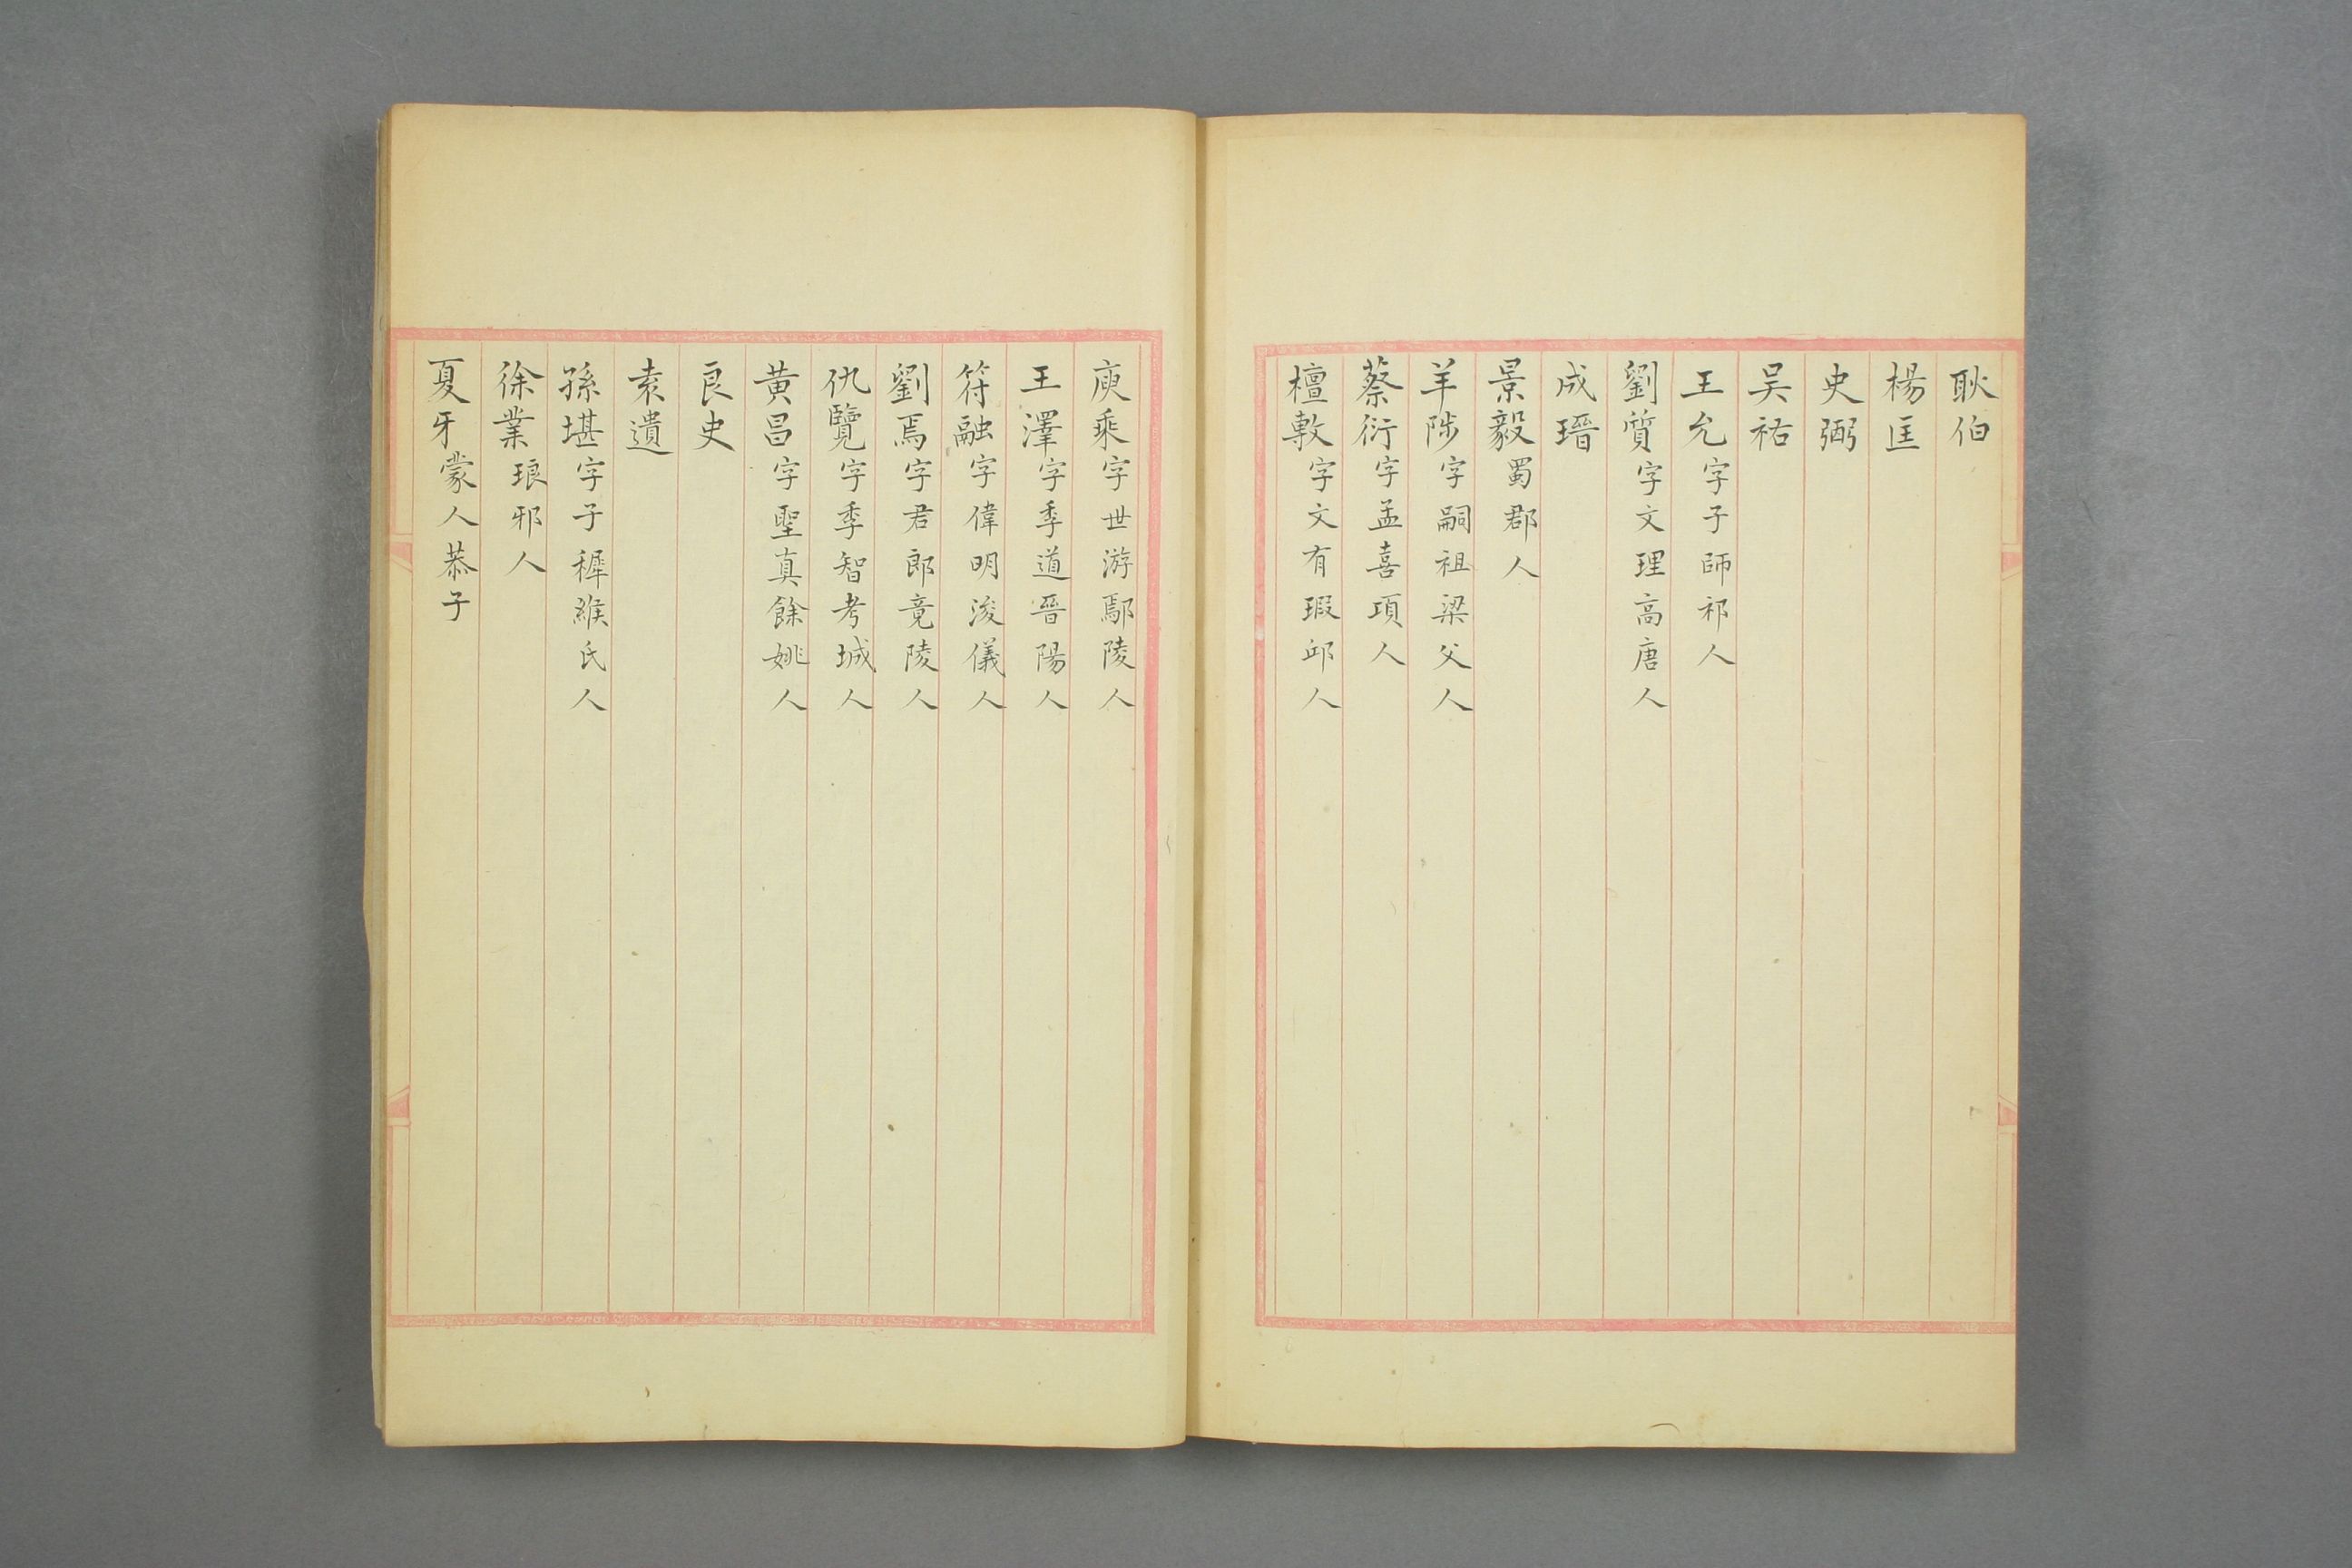 耿伯
楊匡
史弼
吴祐
王允字子師祁人
劉質字文理高唐人
成瑨
景毅蜀郡人
羊陟字嗣祖梁父人
蔡衍字孟喜項人
檀敷字文有瑕邱人
庾乘字世游鄢陵人
王澤字季道晉陽人
符融字偉明浚儀人
劉焉字君郎竟陵人
仇覽字季智考城人
黄昌字聖真餘姚人
良史
袁遺
孫堪字子穉緱氏人
徐業琅邪人
夏牙蒙人恭子